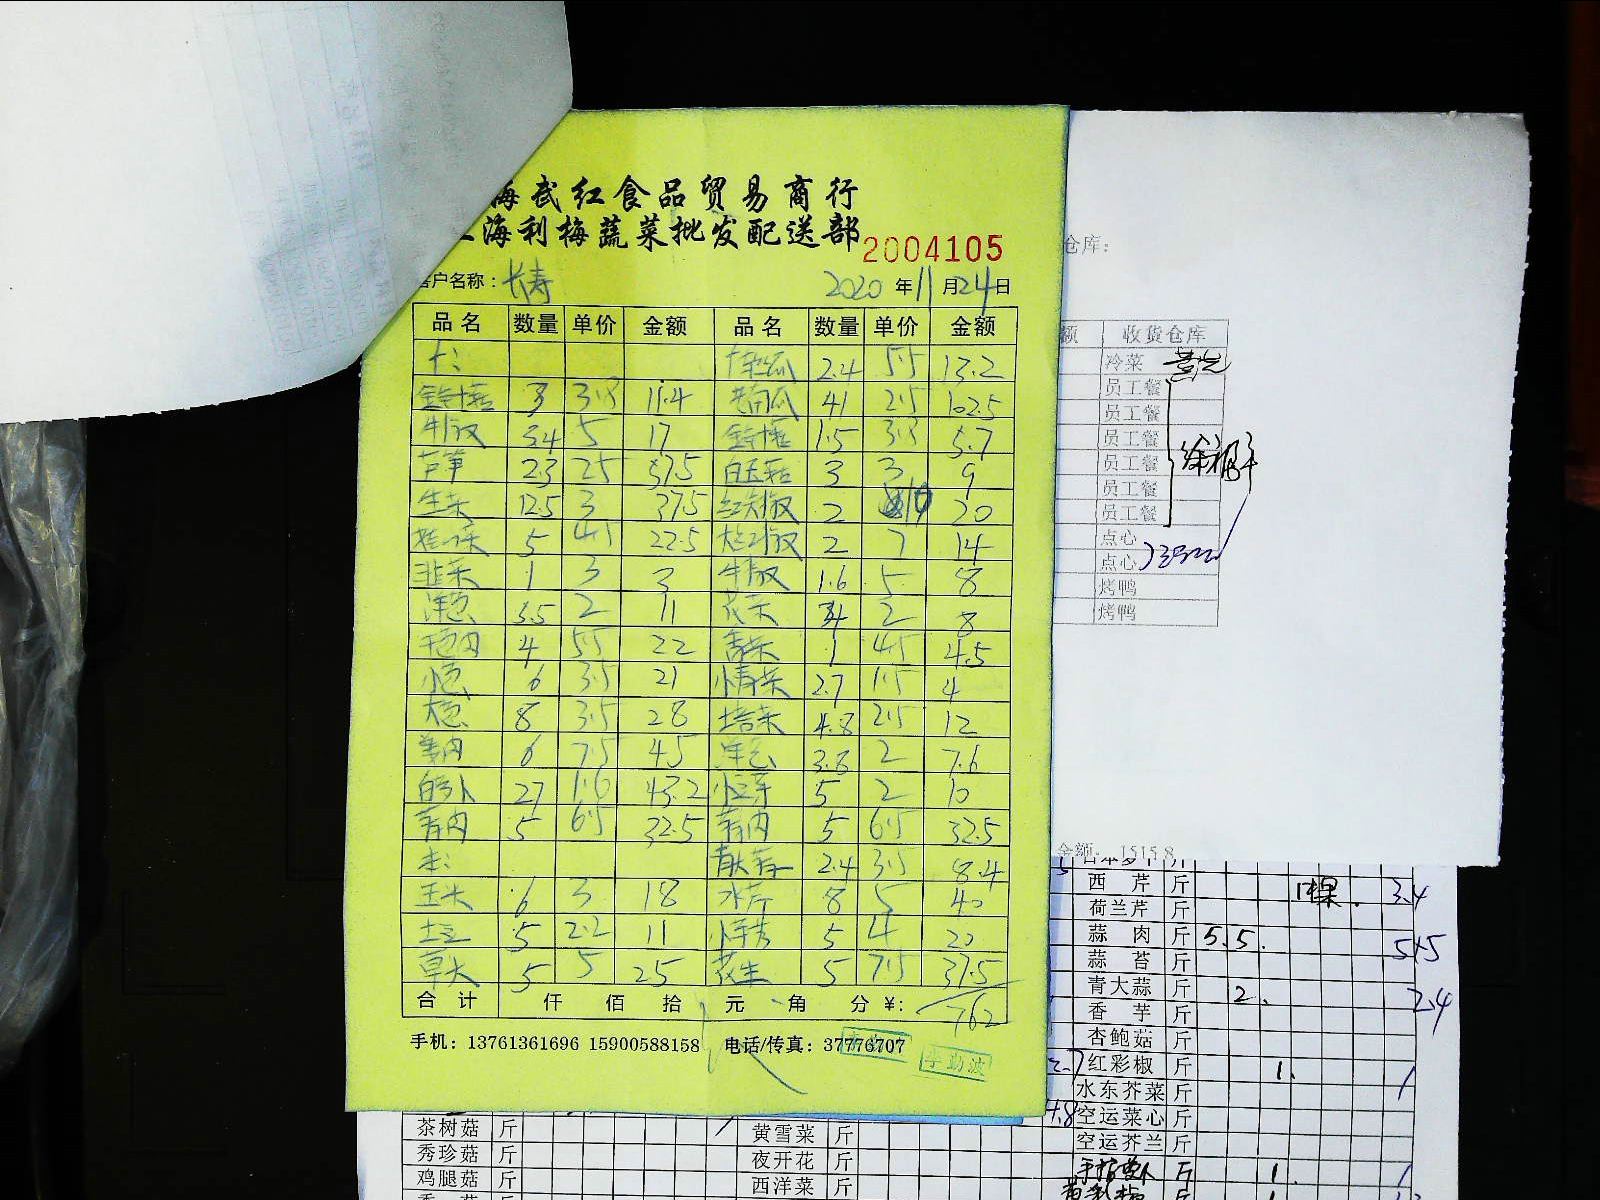 海武红食品贸易商行
上海利梅蔬菜批发配送部
2004105
客户名称：长寿 2020年11月24日
品名 数量 单价 金额 品名 数量 单价 金额
2.4 5.5 13.2
3 3.8 11.4 老南瓜 41 2.5 102.5
牛椒 3.4 5 17 1.5 3.8 5.7
芦笋 23 25 57.5 白玉菇 3 3 9
生菜 12.5 3 37.5 红尖椒 2 10 20
5 4.5 22.5 2 7 14
韭菜 1 3 3 牛椒 1.6 5 8
洋葱 5.5 2 11 花菜 4 2 8
毛豆肉 4 5.5 22 1 4.5 4.5
小葱 6 3.5 21 小青菜 2.7 1.5 4
大葱 8 3.5 28 塔菜 4.8 2.5 12
姜肉 6 7.5 45 洋葱 3.8 2 7.6
白萝卜 27 1.6 43.2 小土豆 5 2 10
蒜肉 5 6.5 32.5 蒜肉 5 6.5 32.5
青大蒜 2.4 3.5 8.4
玉米 6 3 18 水芹 8 5 40
土豆 5 2.2 11 小芋艿 5 4 20
草头 5 5 25 花生 5 7.5 37.5
合计 仟 佰 拾 元 角 分 ¥: 762
手机：13761361696 15900588158 电话/传真：37776707
李勤波
仓库：
额 收货仓库
冷菜
员工餐
员工餐
员工餐
员工餐
员工餐
员工餐
点心
点心
烤鸭
烤鸭
金额： 1515.8
西芹 斤 1棵. 3.4
荷兰芹 斤
蒜肉 斤 5.5. 5+5
蒜苔 斤
青大蒜 斤 2. 2.4
香芋 斤
杏鲍菇 斤
红彩椒 斤 1. 1
水东芥菜 斤
4.8 空运菜心 斤
空运芥兰 斤
斤 1. 1
茶树菇 斤 黄雪菜 斤
秀珍菇 斤 夜开花 斤
鸡腿菇 斤 西洋菜 斤